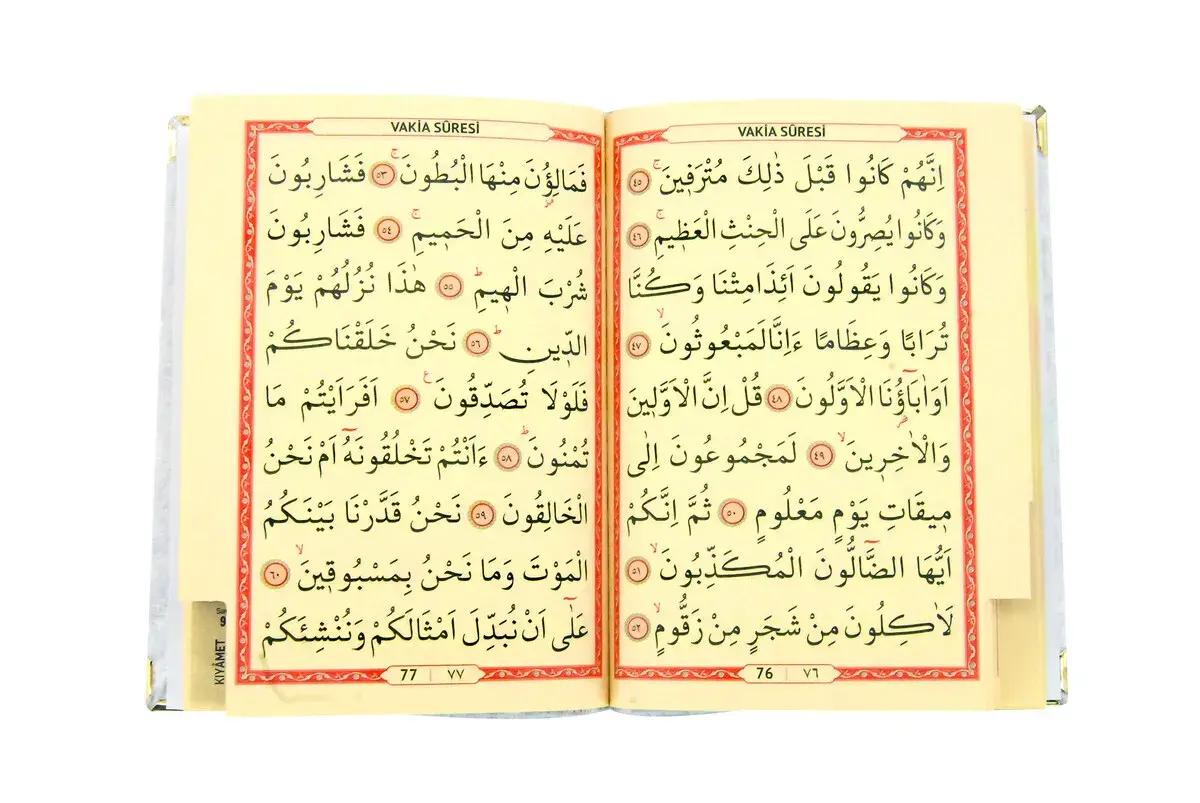 VAKİA SÛRESİ
اِنَّهُمْ كَانُوا قَبْلَ ذٰلِكَ مُتْرَفٖينَۚ ٤٥
وَكَانُوا يُصِرُّونَ عَلَى الْحِنْثِ الْعَظٖيمِۚ ٤٦
وَكَانُوا يَقُولُونَ اَئِذَامِتْنَا وَكُنَّا
تُرَابًا وَعِظَامًا ءَاِنَّالَمَبْعُوثُونَۙ ٤٧
اَوَاٰبَٓاؤُنَا الْاَوَّلُونَ ٤٨ قُلْ اِنَّ الْاَوَّلٖينَ
وَالْاٰخِرٖينَۙ ٤٩ لَمَجْمُوعُونَ اِلٰى
مٖيقَاتِ يَوْمٍ مَعْلُومٍ ٥٠ ثُمَّ اِنَّكُمْ
اَيُّهَا الضَّٓالُّونَ الْمُكَذِّبُونَۙ ٥١
لَاٰكِلُونَ مِنْ شَجَرٍ مِنْ زَقُّومٍۙ ٥٢
76 | ٧٦
VAKİA SÛRESİ
فَمَالِؤُنَ مِنْهَا الْبُطُونَۚ ٥٣ فَشَارِبُونَ
عَلَيْهِ مِنَ الْحَمٖيمِۚ ٥٤ فَشَارِبُونَ
شُرْبَ الْهٖيمِۜ ٥٥ هٰذَا نُزُلُهُمْ يَوْمَ
الدّٖينِۜ ٥٦ نَحْنُ خَلَقْنَاكُمْ
فَلَوْلَا تُصَدِّقُونَ ٥٧ اَفَرَاَيْتُمْ مَا
تُمْنُونَۜ ٥٨ ءَاَنْتُمْ تَخْلُقُونَهُٓ اَمْ نَحْنُ
الْخَالِقُونَ ٥٩ نَحْنُ قَدَّرْنَا بَيْنَكُمُ
الْمَوْتَ وَمَا نَحْنُ بِمَسْبُوقٖينَۙ ٦٠
عَلٰٓى اَنْ نُبَدِّلَ اَمْثَالَكُمْ وَنُنْشِئَكُمْ
77 | ٧٧
KIYÂMET